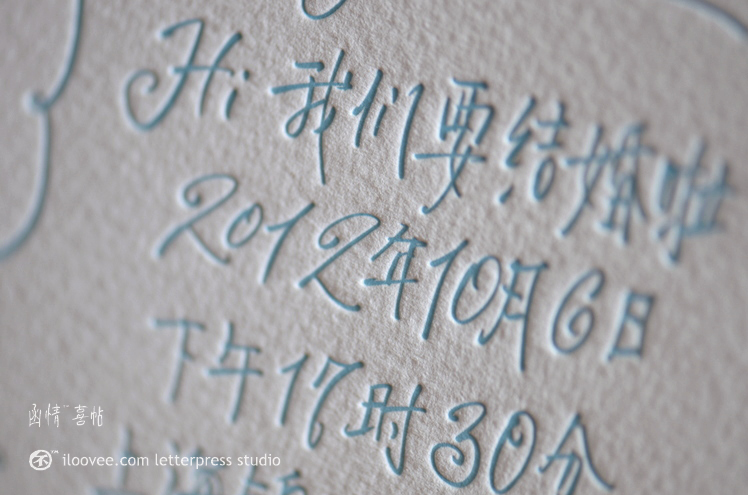 Hi 我们要结婚啦
2012年10月6日
下午17时30分
函情™喜帖
iloovee.com letterpress studio